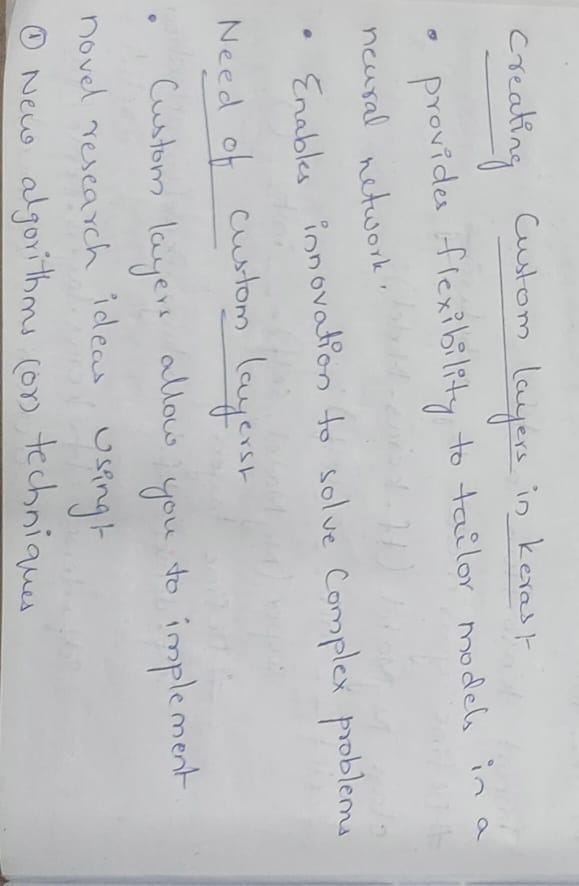 Creating Custom layers in keras :-
• provides flexibility to tailor models in a
neural network.
• Enables innovation to solve Complex problems
Need of custom layers :-
• Custom layers allow you to implement
novel research ideas using :-
① New algorithms (or) techniques